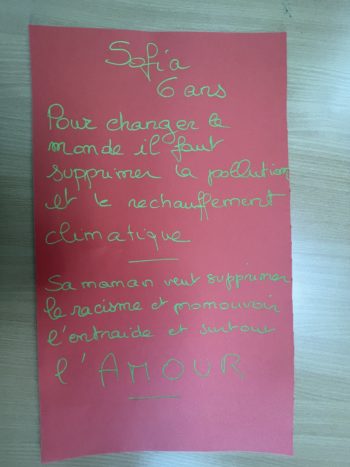 Sofia
6 ans
Pour changer le
monde il faut
supprimer la pollution
et le rechauffement
climatique
Sa maman veut supprimer
le racisme et promouvoir
l'entraide et surtout
l'AMOUR